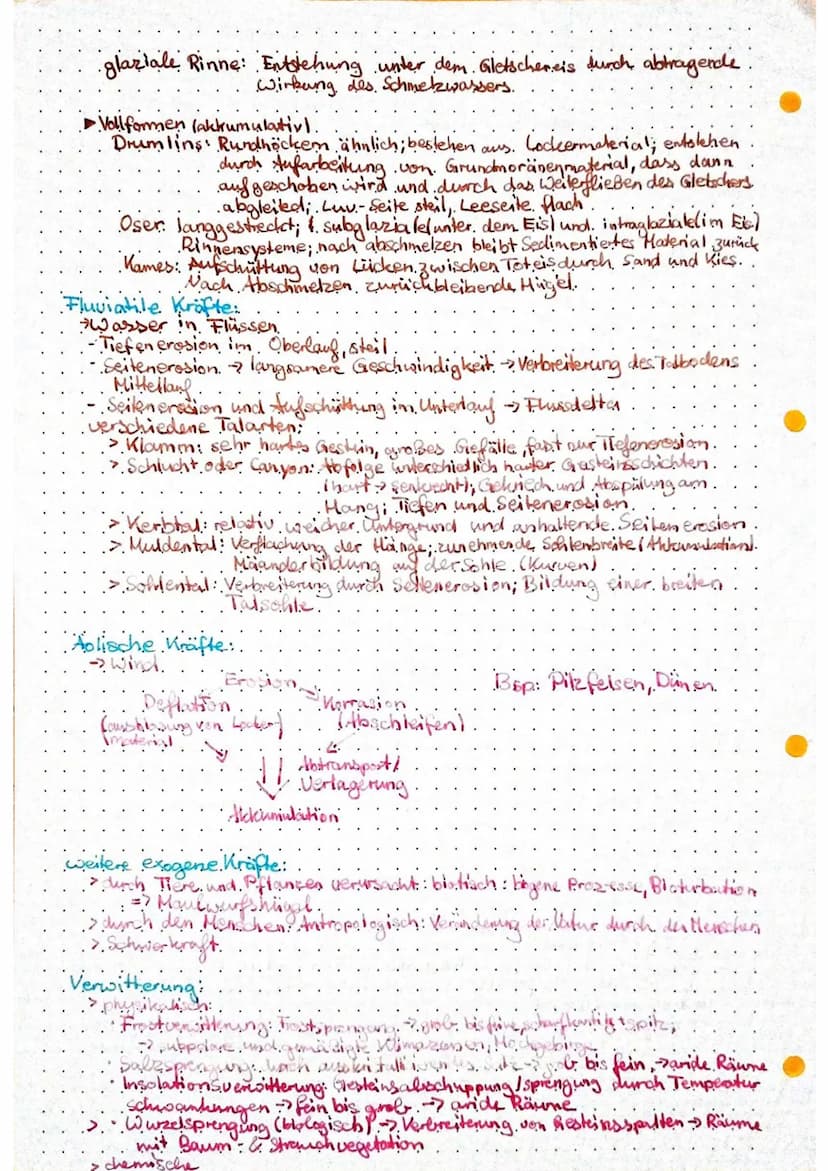 glaziale Rinne: Entstehung unter dem Gletschereis durch abtragende
Wirkung des Schmelzwassers.
▶ Vollformen (akkumulativ)
Drumlins: Rundhöckern ähnlich; bestehen aus Lockermaterial; entstehen
durch Aufarbeitung von Grundmoränenmaterial, dass dann
aufgeschoben wird und durch das Weiterfließen des Gletschers
abgleited; Luv-Seite steil, Leeseite flach
Oser: langgestreckt; subglaziale (unter dem Eis) und intraglaziale (im Eis)
Rinnensysteme; nach abschmelzen bleibt Sedimentiertes Material zurück
Kames: Aufschüttung von Lücken zwischen Toteis durch Sand und Kies.
Nach Abschmelzen zurückbleibende Hügel.
Fluviatile Kräfte:
→ Wasser in Flüssen
- Tiefenerosion im Oberlauf, steil
- Seitenerosion → langsamere Geschwindigkeit → Verbreiterung des Talbodens
Mittellauf
- Seitenerosion und Aufschüttung im Unterlauf → Flussdelta
verschiedene Talarten:
> Klamm: sehr hartes Gestein, großes Gefälle, fast nur Tiefenerosion.
> Schlucht oder Canyon: Abfolge unterschiedlich harter Gesteinsschichten
(hart → senkrecht); Gekriech und Abspülung am
Hang; Tiefen und Seitenerosion
> Kerbtal: relativ weicher Untergrund und anhaltende Seitenerosion
> Muldental: Verflachung der Hänge; zunehmende Sohlenbreite (Akkumulation)
Mäanderbildung auf der Sohle (Kurven)
> Sohlental: Verbreiterung durch Seitenerosion; Bildung einer breiten
Talsohle
Äolische Kräfte:
→ Wind
Erosion
Bsp: Pilzfelsen, Dünen
Deflation
Korrasion
(ausblasung von Locker-
(Abschleifen)
material
Abtransport/
Verlagerung
Akkumulation
weitere exogene Kräfte:
> durch Tiere und Pflanzen verursacht: biotisch: biogene Prozesse, Bioturbation
=> Maulwurfshügel
> durch den Menschen: Antropologisch: Veränderung der Natur durch den Menschen
> Schwerkraft
Verwitterung:
> physikalisch:
· Frostverwitterung: Frostsprengung → grob bis feine scharfkantig + spitz;
→ subpolare und gemäßigte Klimazonen, Hochgebirge
· Salzsprengung: durch Salz → grob bis fein, → aride Räume
· Insolationsverwitterung: Gesteinsabschuppung/sprengung durch Temperatur
schwankungen → fein bis grob → aride Räume
> · Wurzelsprengung (biologisch) → Verbreiterung von Gesteinsspalten → Räume
mit Baum- & Strauchvegetation
> chemische